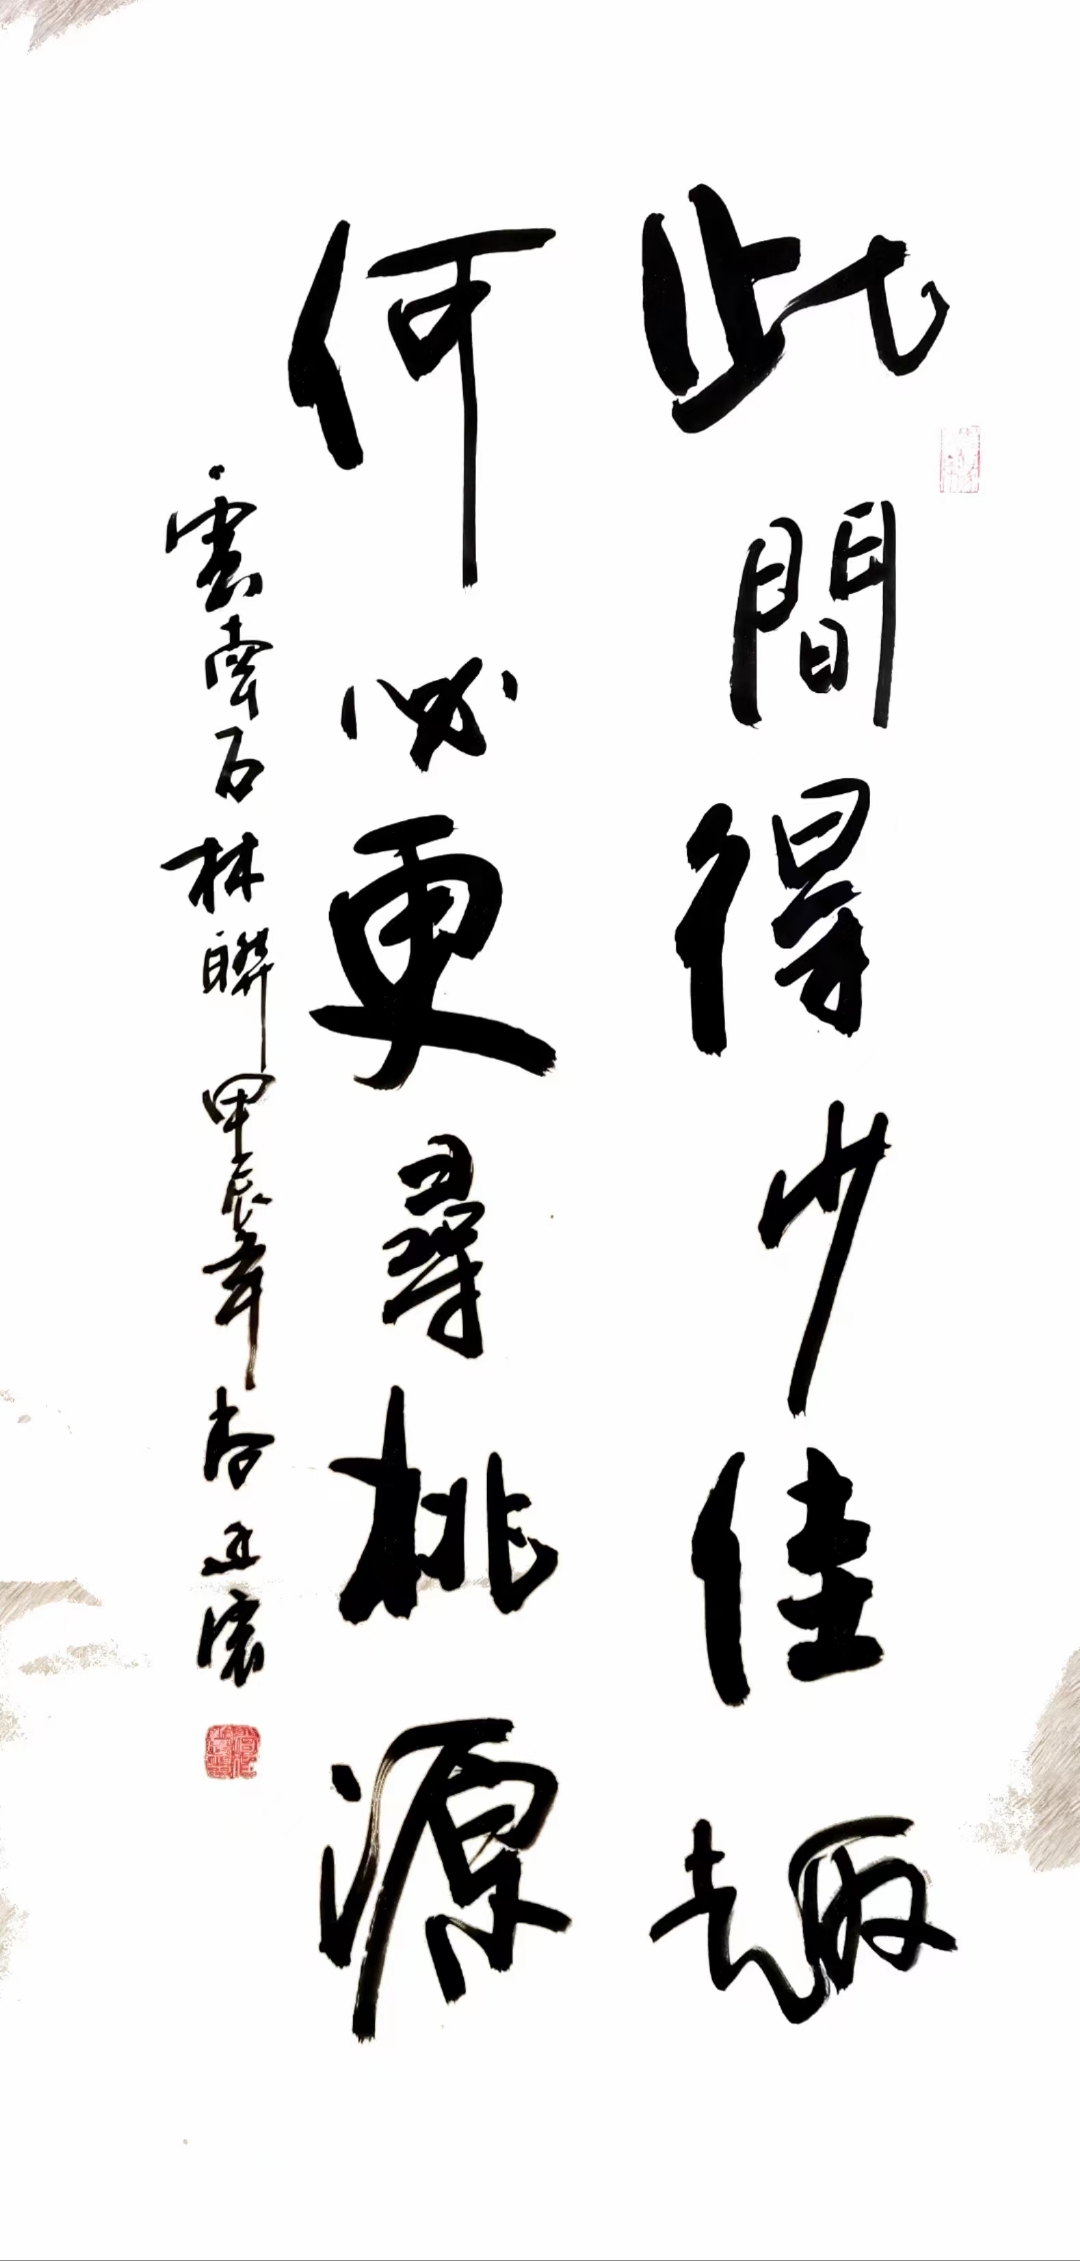 此間得少佳趣
何必更尋桃源
雲南石林聯甲辰年